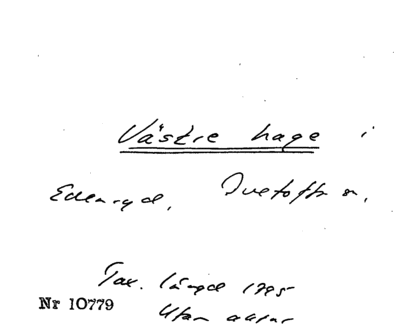 Västre hage i
Edenryd, Ivetofta sn.
Tax. längd 1795
Nr 10779
Utan aktnr